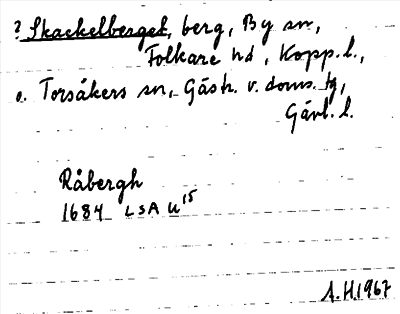 ? Skackelberget, berg, By sn,
Folkare hd, Kopp. l.,
o. Torsåkers sn, Gästr. v. doms. tg,
Gävl. l.
Råbergh
1684 LSA U15
A.H.1967